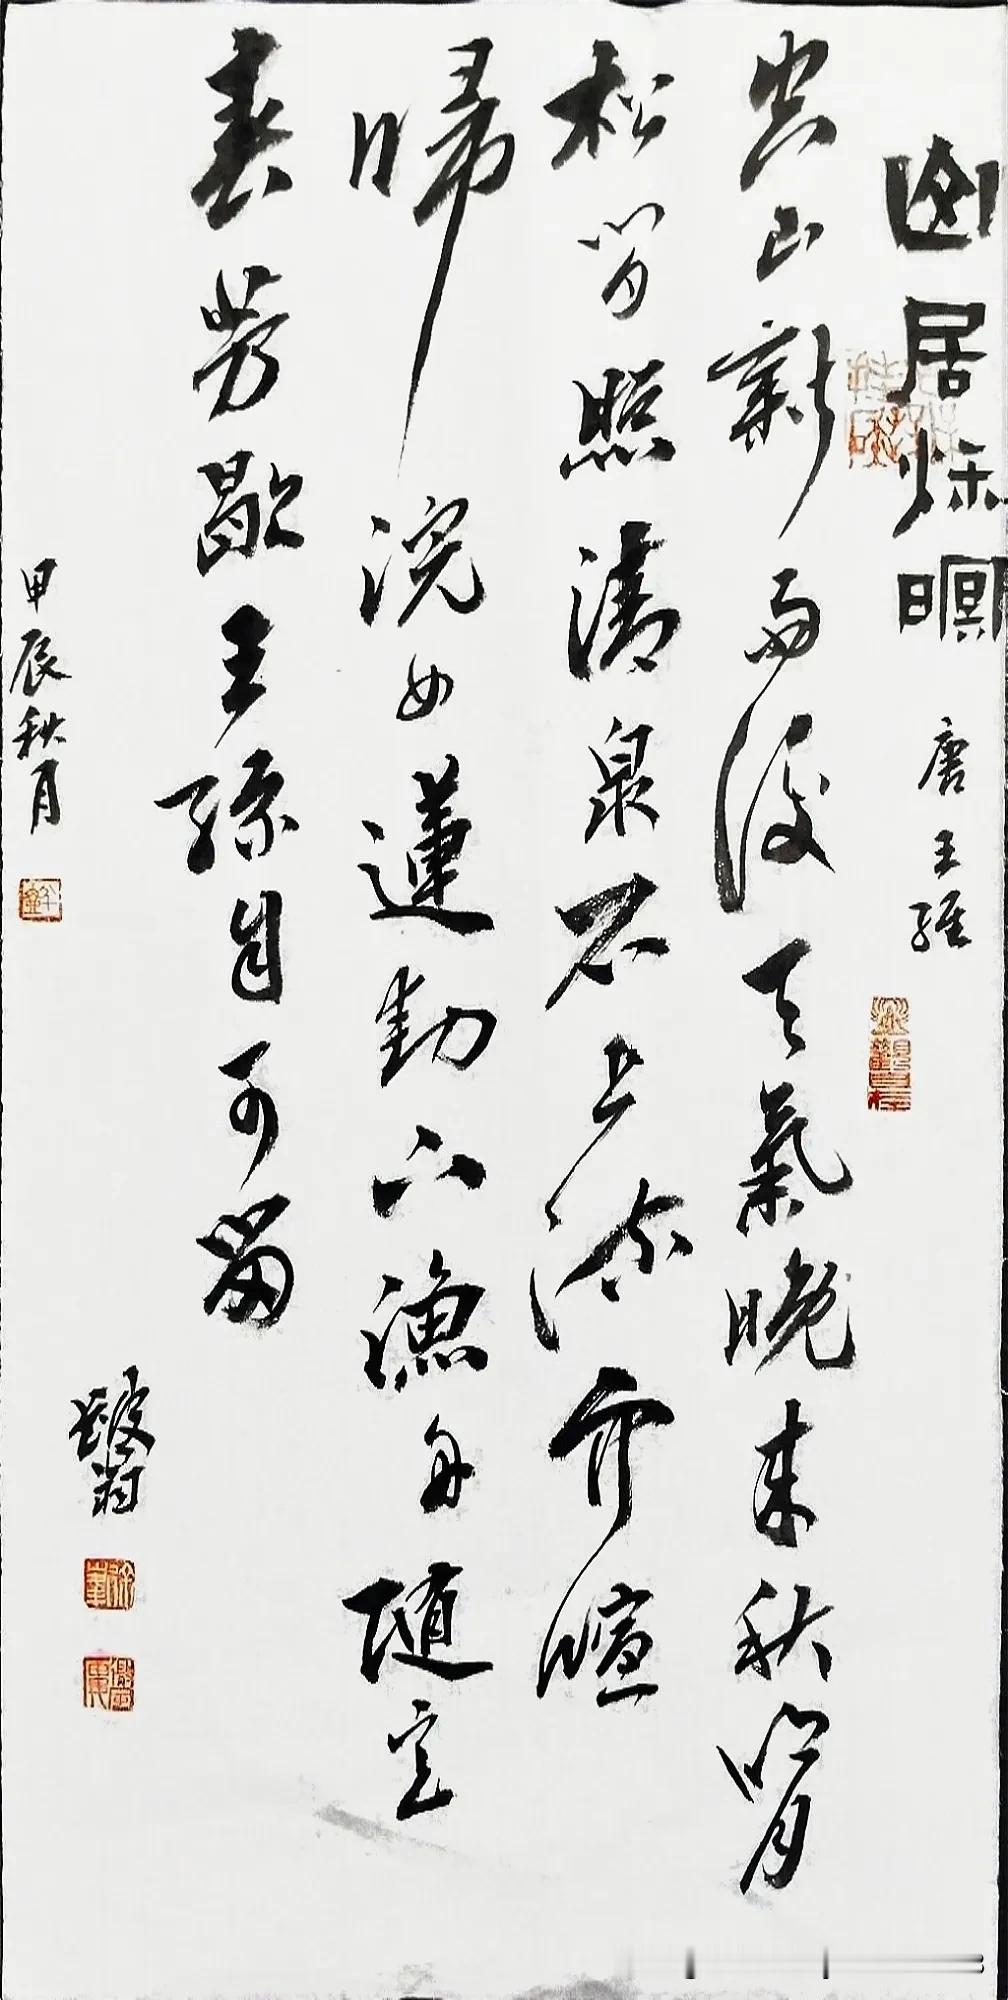 山居秌暝
唐王維
空山新雨後天氣晚来秋明月
松間照清泉石上流竹喧
帰浣女蓮動下漁舟隨意
春芳歇王孫自可留
甲辰秋月